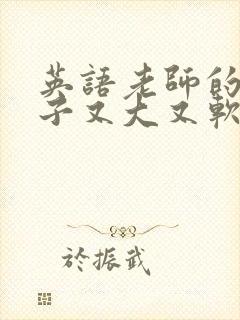 英語老師的
子又大又軟
於振武